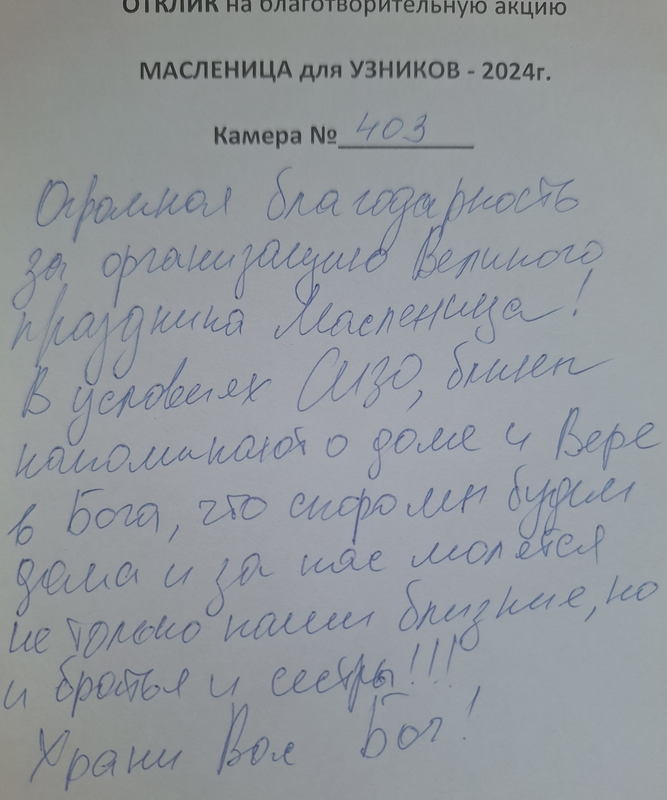 ОТКЛИК на благотворительную акцию
МАСЛЕНИЦА для УЗНИКОВ - 2024г.
Камера № 403
Огромная благодарность
за организацию Великого
праздника Масленица!
В условиях СИЗО, блины
напоминают о доме и Вере
в Бога, что скоро мы будем
дома и за нас молятся
не только наши близкие, но
и братья и сестры!!!
Храни Вас Бог!